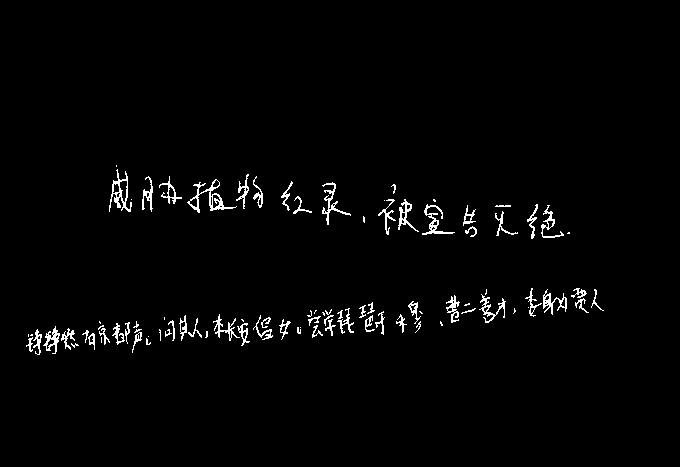 威胁植物红录，被宣告灭绝.
铮铮然有京都声。问其人，本长安倡女。尝学琵琶于穆、曹二善才，委身为贾人